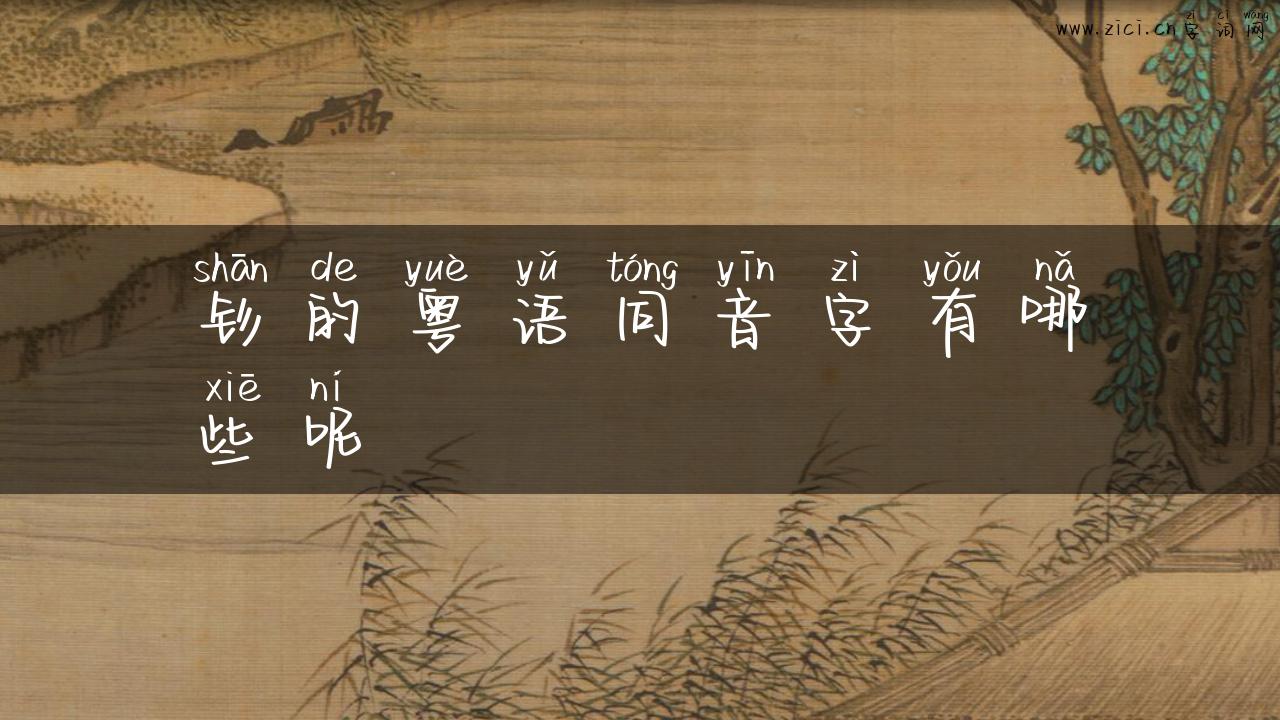 zì cí wǎng
www.zici.cn 字词网
shān de yuè yǔ tóng yīn zì yǒu nǎ
钐的粤语同音字有哪
xiē ní
些呢